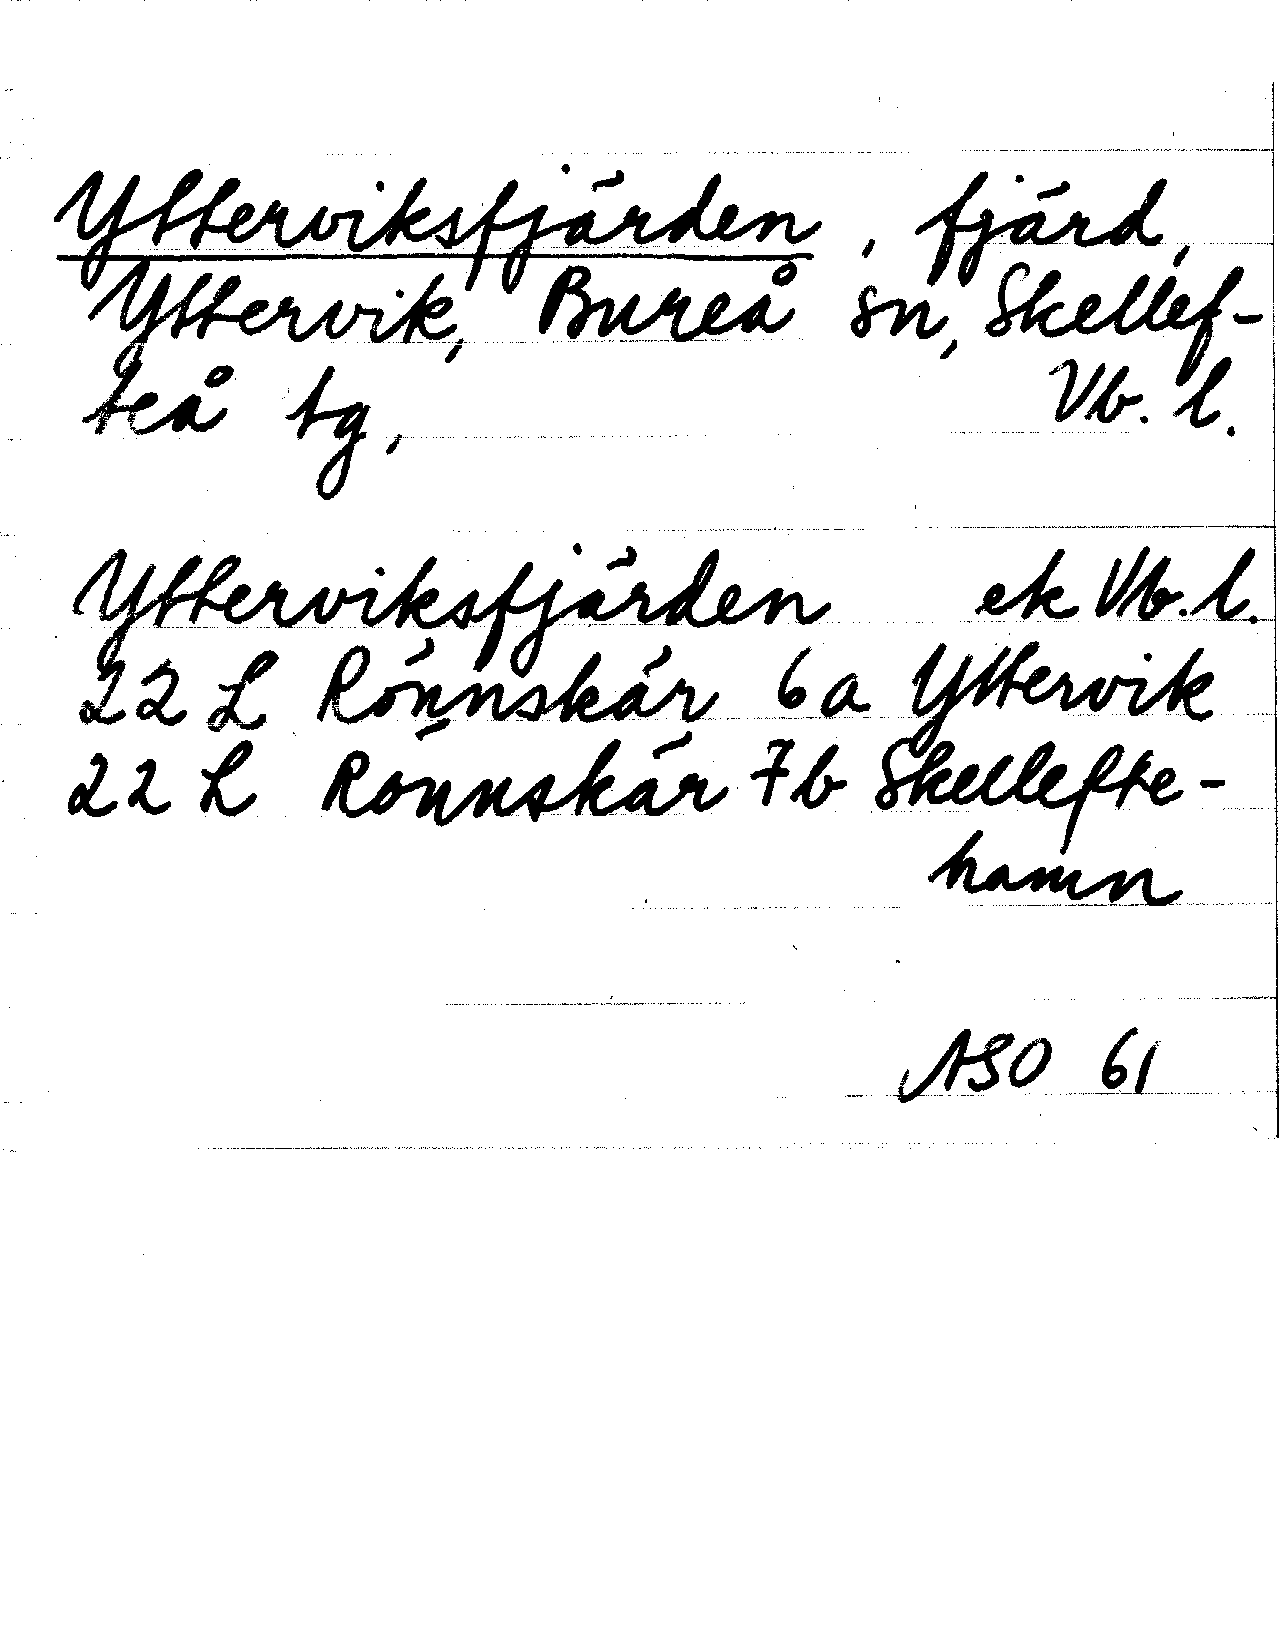 Ytterviksfjärden, fjärd,
Yttervik, Bureå sn, Skellef-
teå tg, Vb. l.
Ytterviksfjärden ek Vb. l.
22 L Rönnskär 6a Yttervik
22 L Rönnskär 7b Skellefte-
hamn
ASO 61